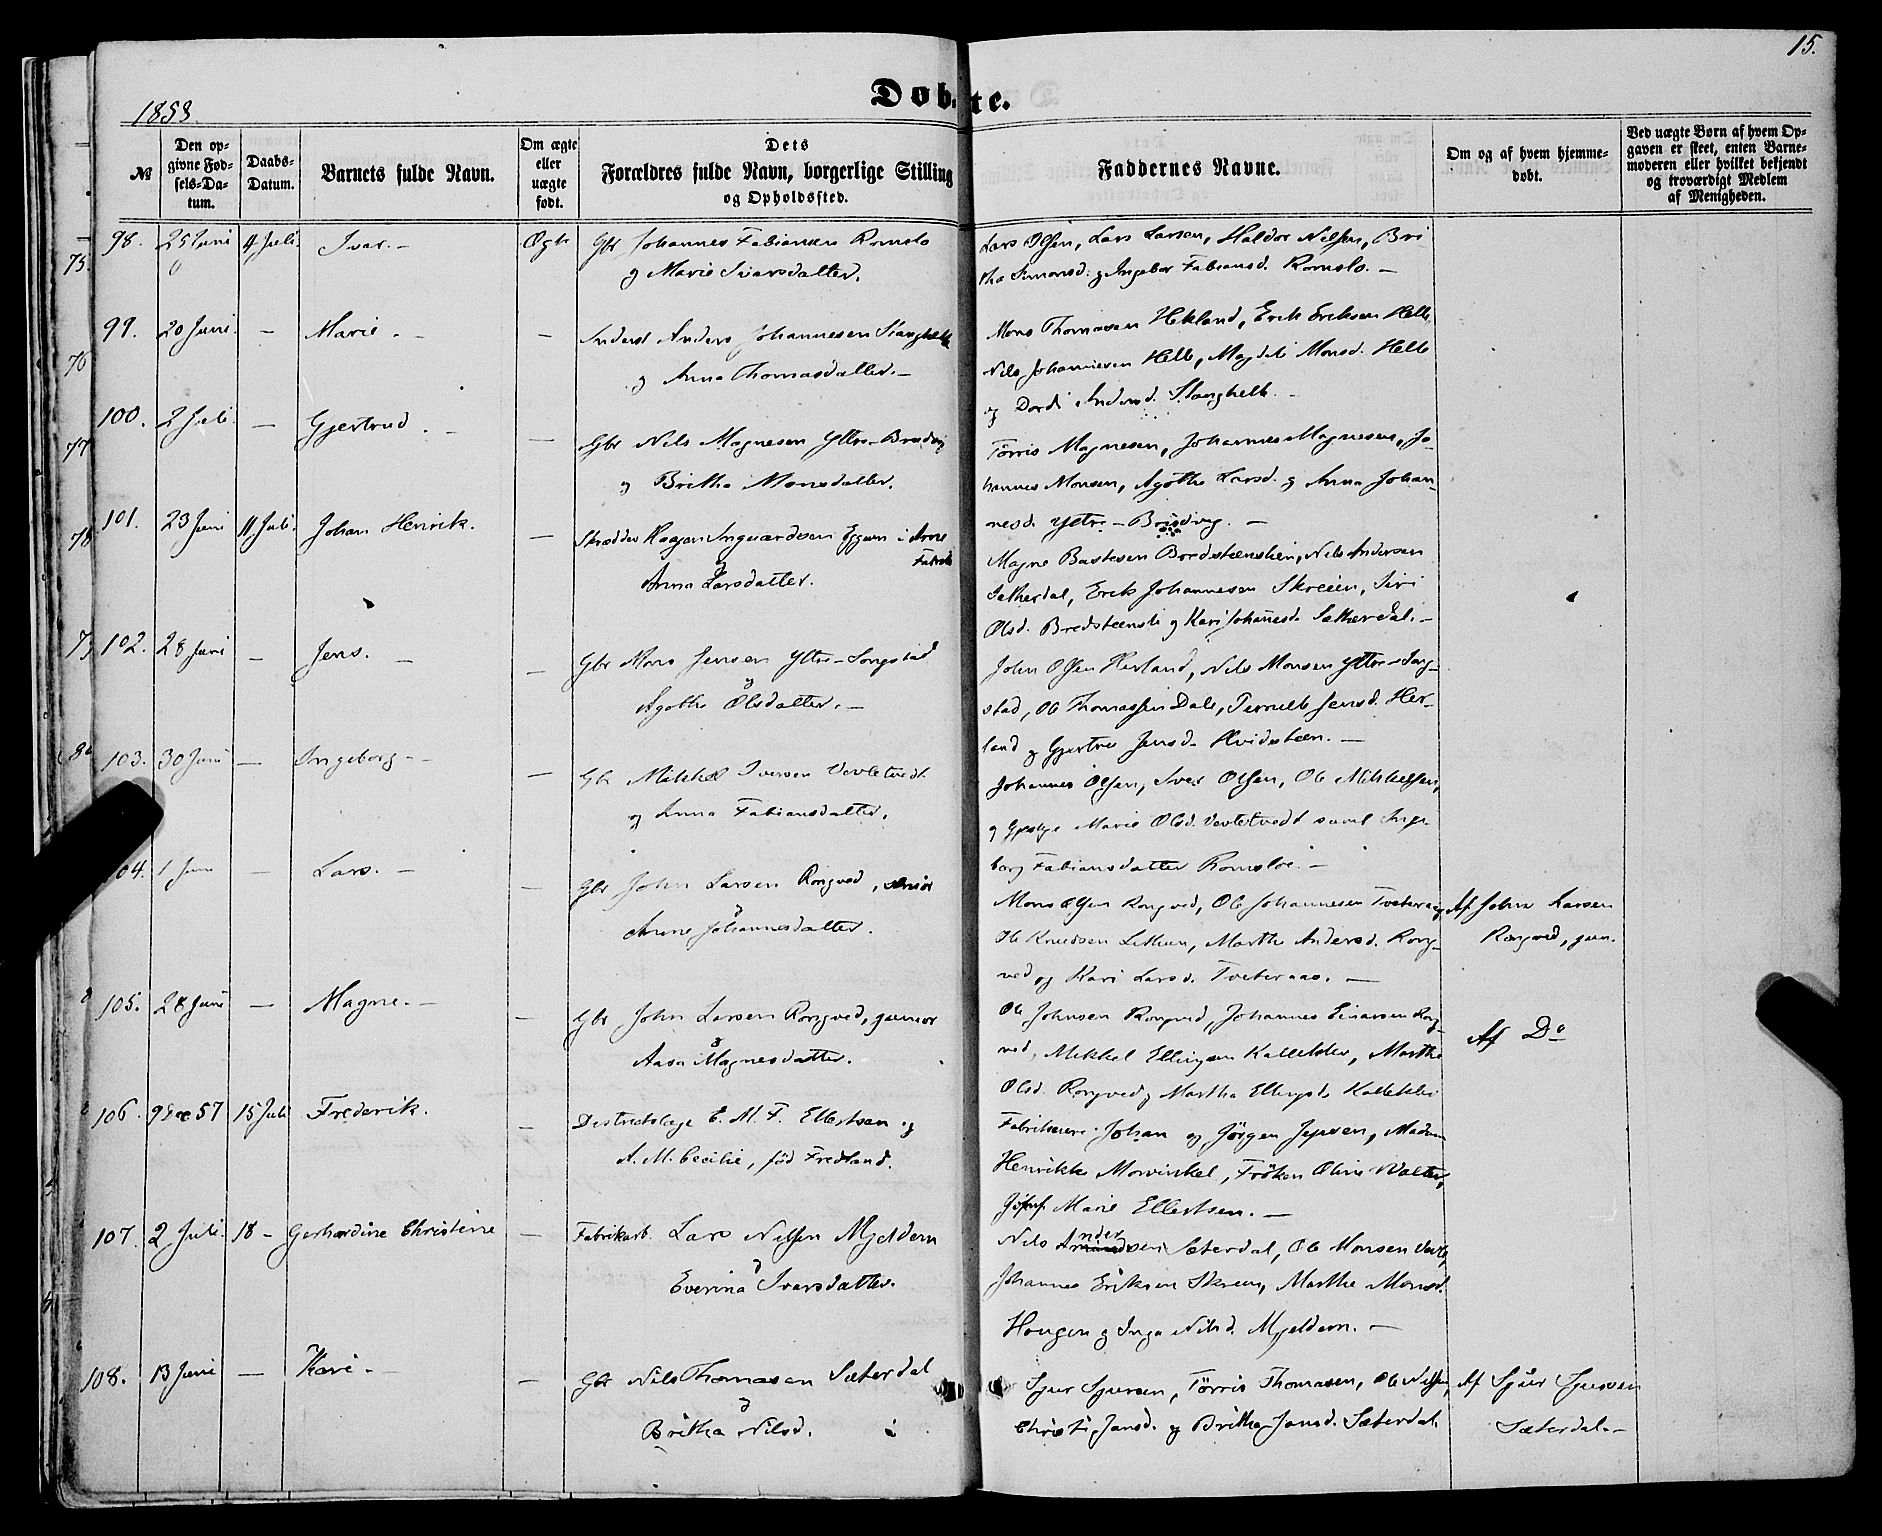 15.
Døbte.
1858.
№
Den opgivne Fødsels-Datum.
Daabs-Datum.
Barnets fulde Navn.
Om ægte eller uægte født.
Dets Forældres fulde Navn, borgerlige Stilling og Opholdssted.
Faddernes Navne.
Om og af hvem hjemmedøbt.
Ved uægte Børn af hvem Opgaven er skeet, enten Barnemoderen eller hvilket bekjendt og troværdigt Medlem af Menigheden.
98. 25 Juni 4 Juli Ivar. - Ægte Gbr Johannes Fabiansen Romslo
og Marie Ivarsdatter.
Lars Olsen, Lars Larsen, Haldor Nilsen, Bri
tha Simonsd. og Ingebor Fabiansd. Romslo. -
99. 20 Juni - Marie. - - Inderst Anders Johannesen Stanghelle
og Anna Thomasdatter. -
Mons Thomasen Hekland, Erik Eriksen Helle
Nils Johannesen Helle, Magdeli Monsd. Helle
og Dordi Andersd. Stanghelle. -
100. 2 Juli - Gjertrud. - - Gbr Nils Magnesen Yttre-Bredvig
og Britha Monsdatter.
Tørris Magnesen, Johannes Magnesen, Jo-
hannes Monsen, Agothe Larsd. og Anna Johan-
nesd. Yttre-Bredvig. -
101. 23 Juni 11 Juli. Johan Henrik. - Skrædder Haagen Ingvardsen i Arne
Fabrik
og
Anna Larsdatter.
Magne Bastesen Bredsteenslien, Nils Andersen
Sætherdal, Erik Johannesen Skreien, Siri
Olsd. Bredsteensli og Kari Johannesd. Sætherdal. -
102. 28 Juni - Jens. - - Gbr Mons Jensen Yttre-Songstad
og
Agothe Olsdatter. -
John Olsen Herland, Nils Monsen Yttre-Song-
stad, Ole Thomassen Dale, Pernille Jensd. Her-
land og Gjertrud Jensd. Hvidsteen. -
103. 30 Juni - Ingeborg - - Gbr Mikkel Iversen Vevletvedt
og Anna Fabiansdatter.
Johannes Olsen, Iver Olsen, Ole Mikkelsen,
og Marie Olsd. Vevletvedt samt Inge-
borg Fabiansdatter Romsloe. -
104. 1 Juni - Lars. - - Gbr John Larsen Rongved, senior
og
Anne Johannesdatter.
Mons Olsen Rongved, Ole Johannesen Tveteraas
Ole Knudsen Lethun, Marthe Andersd. Rong-
ved og Kari Larsd. Tveteraas. -
Af John Larsen
Rongved, jun.
105. 28 Juni - Magne. - - Gbr John Larsen Rongved, junior
og
Aasa Magnesdatter.
Ole Johnsen Rongved, Johannes Einarsen Rong-
ved, Mikkel Ellingsen Kalleklev, Marthe
Olsd. Rongved og Martha Ellingsd. Kalleklev
Af Do
106. 9 Dec 57 15 Juli Frederik. - Destrictslæge E. M. F. Ellertsen og
A. M. Cecilie, fød Fredland.
Fabrikeiere Johan og Jørgen Jepsen, Madam
Henrikke Mowinkel, Frøken Oline Walter,
Jomf. Marie Ellertsen. -
107. 2 Juli 18 - Gerhardine Christine - Fabrikarb. Lars Nilsen Mjeldem
og
Everina Ivarsdatter.
Nils Andersen Sæterdal, Ole Monsen Vevle,
Johannes Eriksen Skreien, Marthe Monsd.
Hougen og Inga Nilsd. Mjeldem. -
108. 13 Juni - Kari - - Gbr Nils Thomasen Sæterdal
og
Britha Nilsd.
Sjur Sjursen, Tørris Thomasen, Ole Nilsen,
Christi Jansd. og Britha Jansd. Sæterdal.
Af Sjur Sjursen
Sæterdal. -
75.
76
77
78
79
80